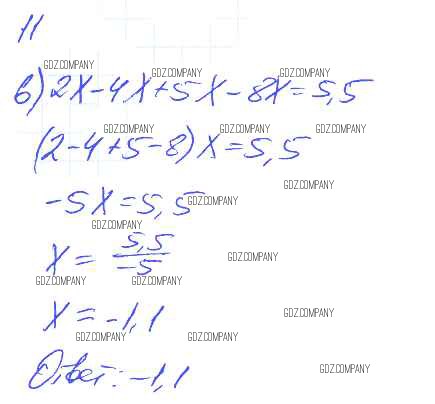 11
GDZ.COMPANY
GDZ.COMPANY GDZ.COMPANY
в) 2x-4x+5x-8x=5,5
GDZ.COMPANY GDZ.COMPANY GDZ.COMPANY
(2-4+5-8)x=5,5
GDZ.COMPANY
-5x=5,5
GDZ.COMPANY
GDZ.COMPANY
x=5,5/-5
GDZ.COMPANY
GDZ.COMPANY GDZ.COMPANY
x=-1,1
GDZ.COMPANY
GDZ.COMPANY GDZ.COMPANY
Ответ: -1,1
GDZ.COMPANY